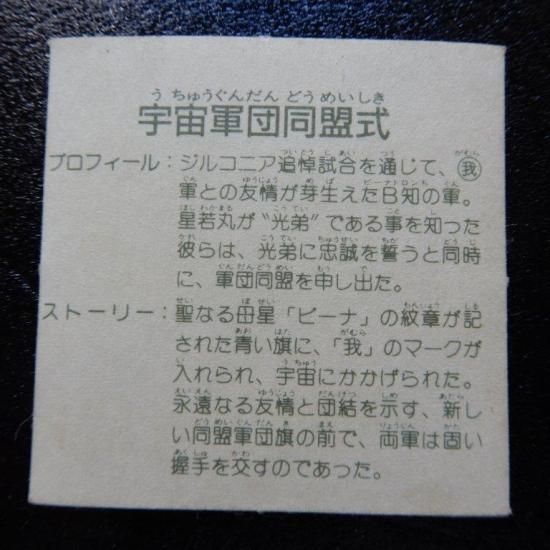 うちゅうぐんだんどうめいしき
宇宙軍団同盟式
プロフィール：ジルコニア追悼試合を通じて、㊎
軍との友情が芽生えたB知の軍。
星若丸が“光弟”である事を知った
彼らは、光弟に忠誠を誓うと同時
に、軍団同盟を申し出た。
ストーリー：聖なる母星「ビーナ」の紋章が記
された青い旗に、「我」のマークが
入れられ、宇宙にかかげられた。
永遠なる友情と団結を示す、新し
い同盟軍団旗の前で、両軍は固い
握手を交すのであった。